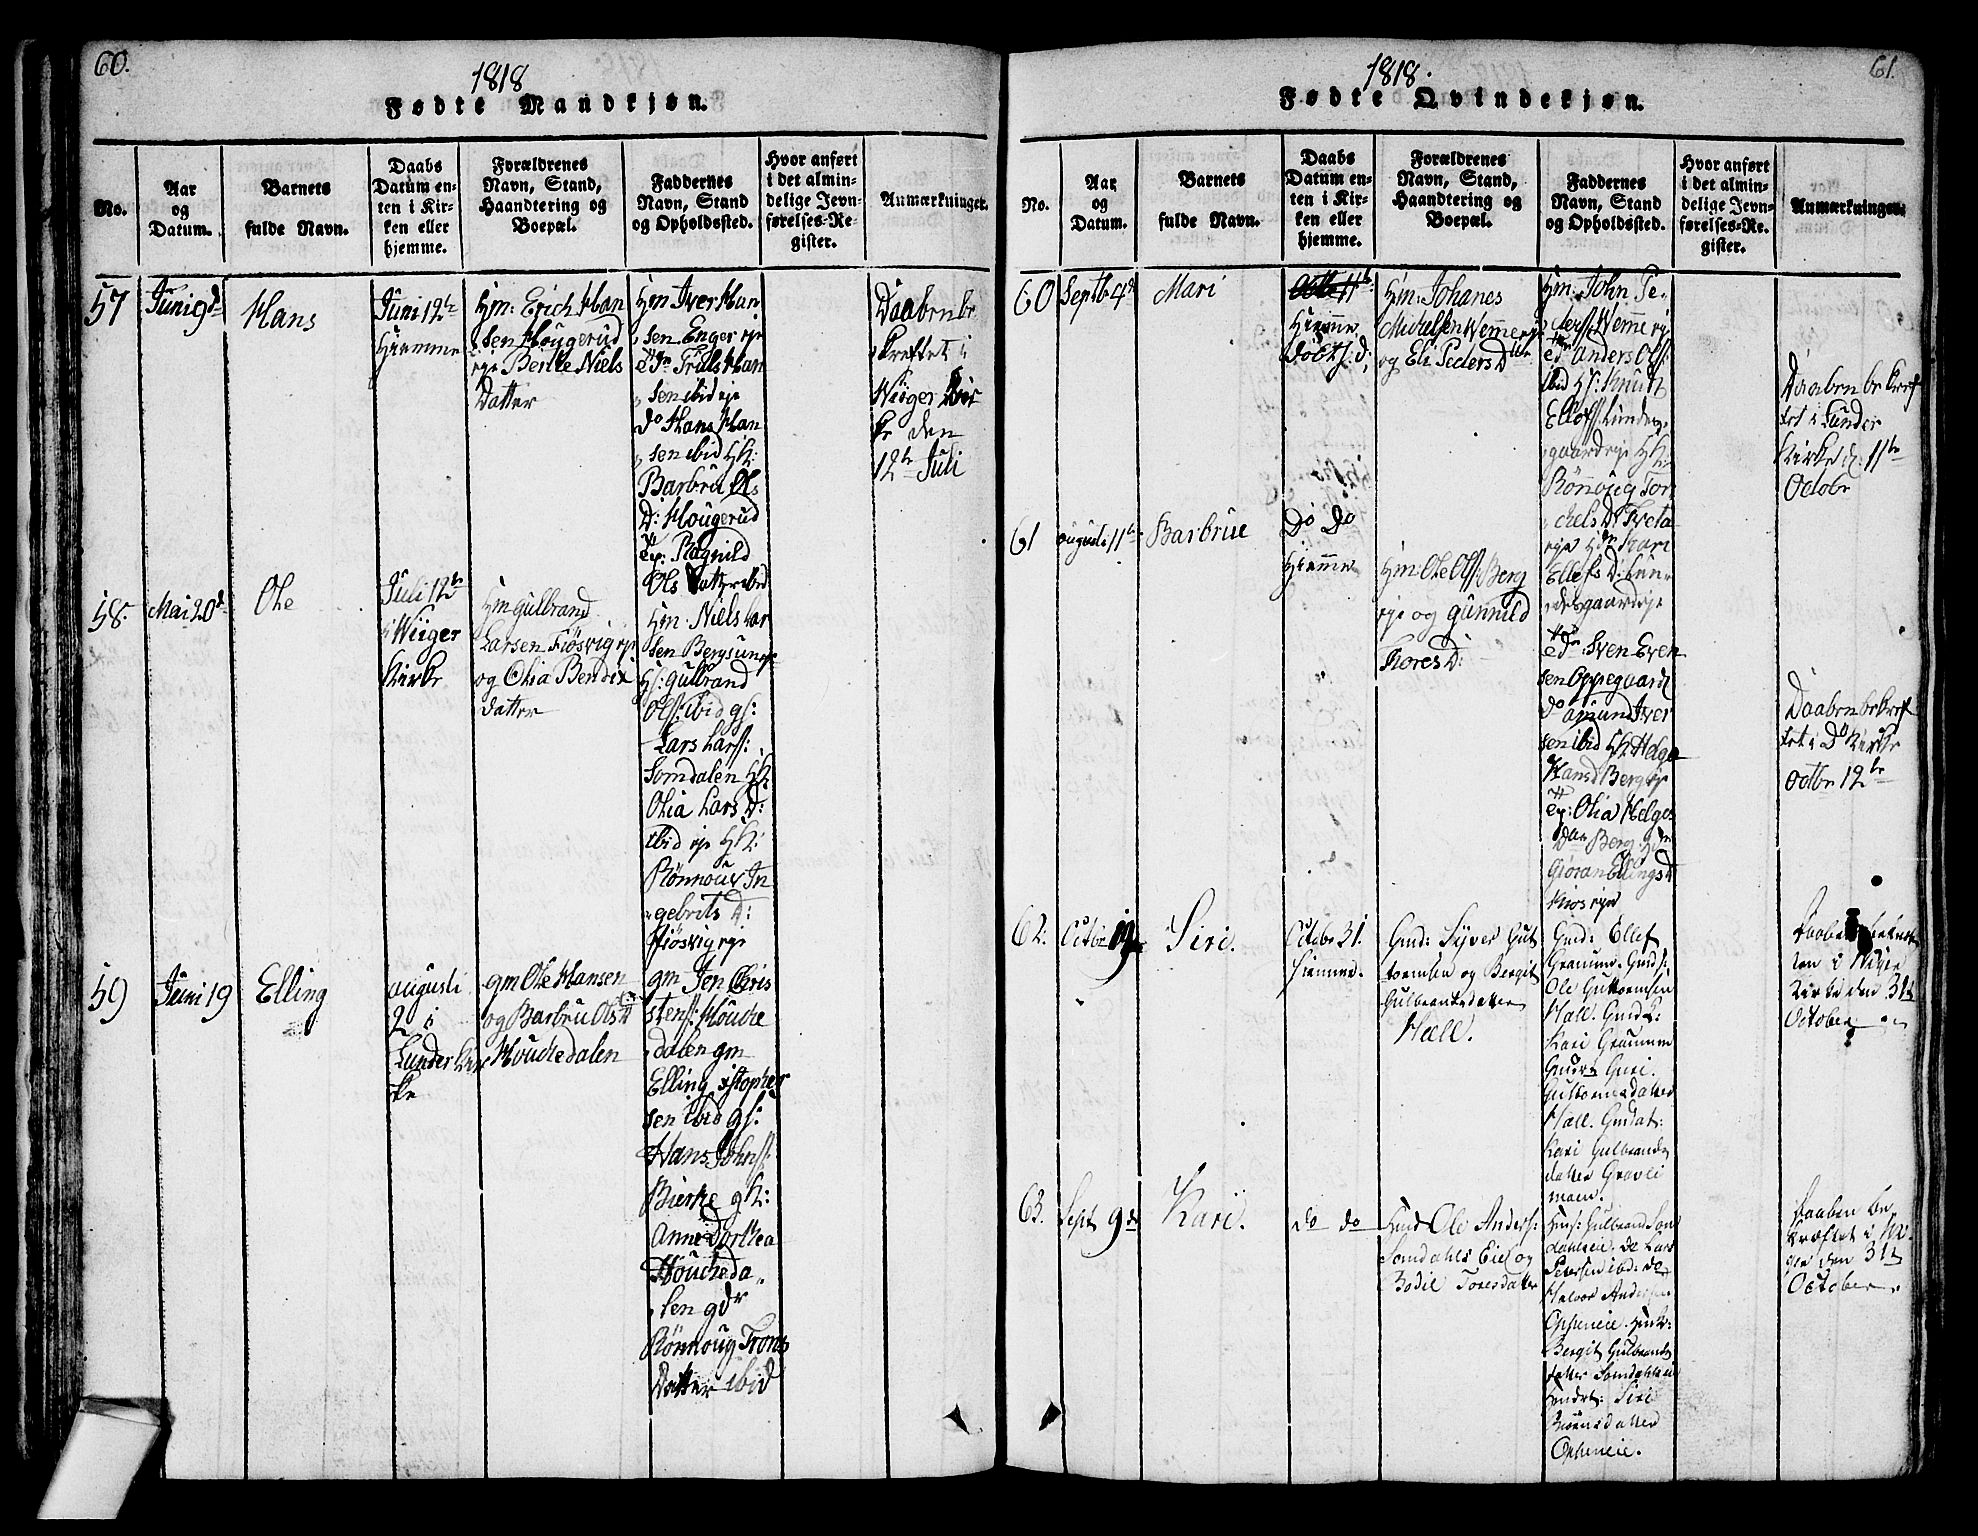 60.
1818
Fødte Mandkjøn.
No.
Aar
og
Datum.
Barnets
fulde Navn.
Daabs
Datum en-
ten i Kir-
ken eller
hjemme.
Forældrenes
Navn, Stand,
Haandtering og
Boepæl.
Faddernes
Navn, Stand
og Opholdssted.
Hvor anført
i det almin-
delige Jevn-
førelses-Re-
gister.
Anmærkninger.
57
Juni 9d
Hans
Juni 12te
Hiemme
Hm: Erich Han
sen Hougerud
eje Berthe Niels
Datter
Hm Iver Han
sen Enger eje
Truls Han
sen ibid eje
do Hans Han
sen ibid HK:
Barbru Ols
D: Hougerud
Ragnild
Ols Datter ibid
Daaben be
kreftet i
Wiiger Kir
ke den
12te Juli
58.
Mai 20d
Ole
Juli 12te
i Wiiger
Kirke
Hm Gulbrand
Larsen Fiøsvig eje
og Olia Bendix
datter
Hm. Niels Lar
sen Bergsund
HS: Gulbrand
Ols: ibid gS:
Lars Lars:
Somdalen HK
Olia Lars D:
ibid eje HK:
Rønnouv In
gebrits D:
Fiøsvig eje
59
Juni 19
Elling
augusti
2 i
Lunder Kir
ke
gm Ole Hansen
og Barbru Ols D
Houchedalen
gm Jen Chris
stens: Houche
dalen gm
Elling xstopher
sen ibid gS:
Hans Johns:
Bierke gK:
Anne Dorthea
Houcheda
len gdr
Rønnoug Trons
Datter ibid
61.
1818.
Fødte Qvindekjøn.
No.
Aar
og
Datum.
Barnets
fulde Navn.
Daabs
Datum en-
ten i Kir-
ken eller
hjemme.
Forældrenes
Navn, Stand,
Haandtering og
Boepæl.
Faddernes
Navn, Stand
og Opholdssted.
Hvor anført
i det almin-
delige Jevn-
førelses-Re-
gister.
Anmærkninger.
60
Septb 4d
Mari
Octb 11te
Hiemme
døbt d:
Hm: Johanes
Michelsen Wemme eje
og Eli Peders Dtter
Hm: John Pe
ders Wemme eje
Anders Ols:
ibid HS: Knud
Ellefs Lunder
gaard eje HK:
Rønnoug Tor
chels D: Tveta
eje Hdr Kari
Ellefs D: Lun
desgaard eje
Daaben be kref
tet i Lunder
Kirke d: 11te
Octobr
61
augusti 11te
Barbrue
Do Do
Hiemme
Hm: Ole Ols: Berg
eje og Gunnild
Tores D:
Sven Even
sen Oppegaard
do Amund Iver
sen ibid HK Helge
Hans D Berg eje
Olia Helges
Dar Berg Hdr
Giøran Ellings D
Kios eje
Daaben be kref
tet i Do Kirke
octbr 12te
62.
Octbr 19
Siri.
Octobr 31.
Hiemme.
Gmd: Syver Gut
tormsen og Bergit
Gulbrandsdatter
Hæll.
Gmd: Ellef
Gramme. Gmds:
Ole Guttormsen
Hæll. Gmdk:
Kari Gramme
Gmdrt Guri.
Guttormsdatter
Hæll. Gmdat:
Kari Gulbrands
datter Gravli
moen.
Daaben bekref
ten i Wiger
Kirke den 31te
October
63.
Sept 9de
Kari.
do do
Hmd Ole Anders:
Somdahls Eie og
Bodil Toresdatter
Hms: Gulbrand Som
dahlseie. do Lars
Petersen ibd: do
Halvor Anders:
Opheneie. Hmk:
Bergit Gulbrands
datter Somdahlseie
Hmdrt: Siri
Biørnsdatter
Opheneie.
Daaben be
kræftet i Wi
ger den 31te
October